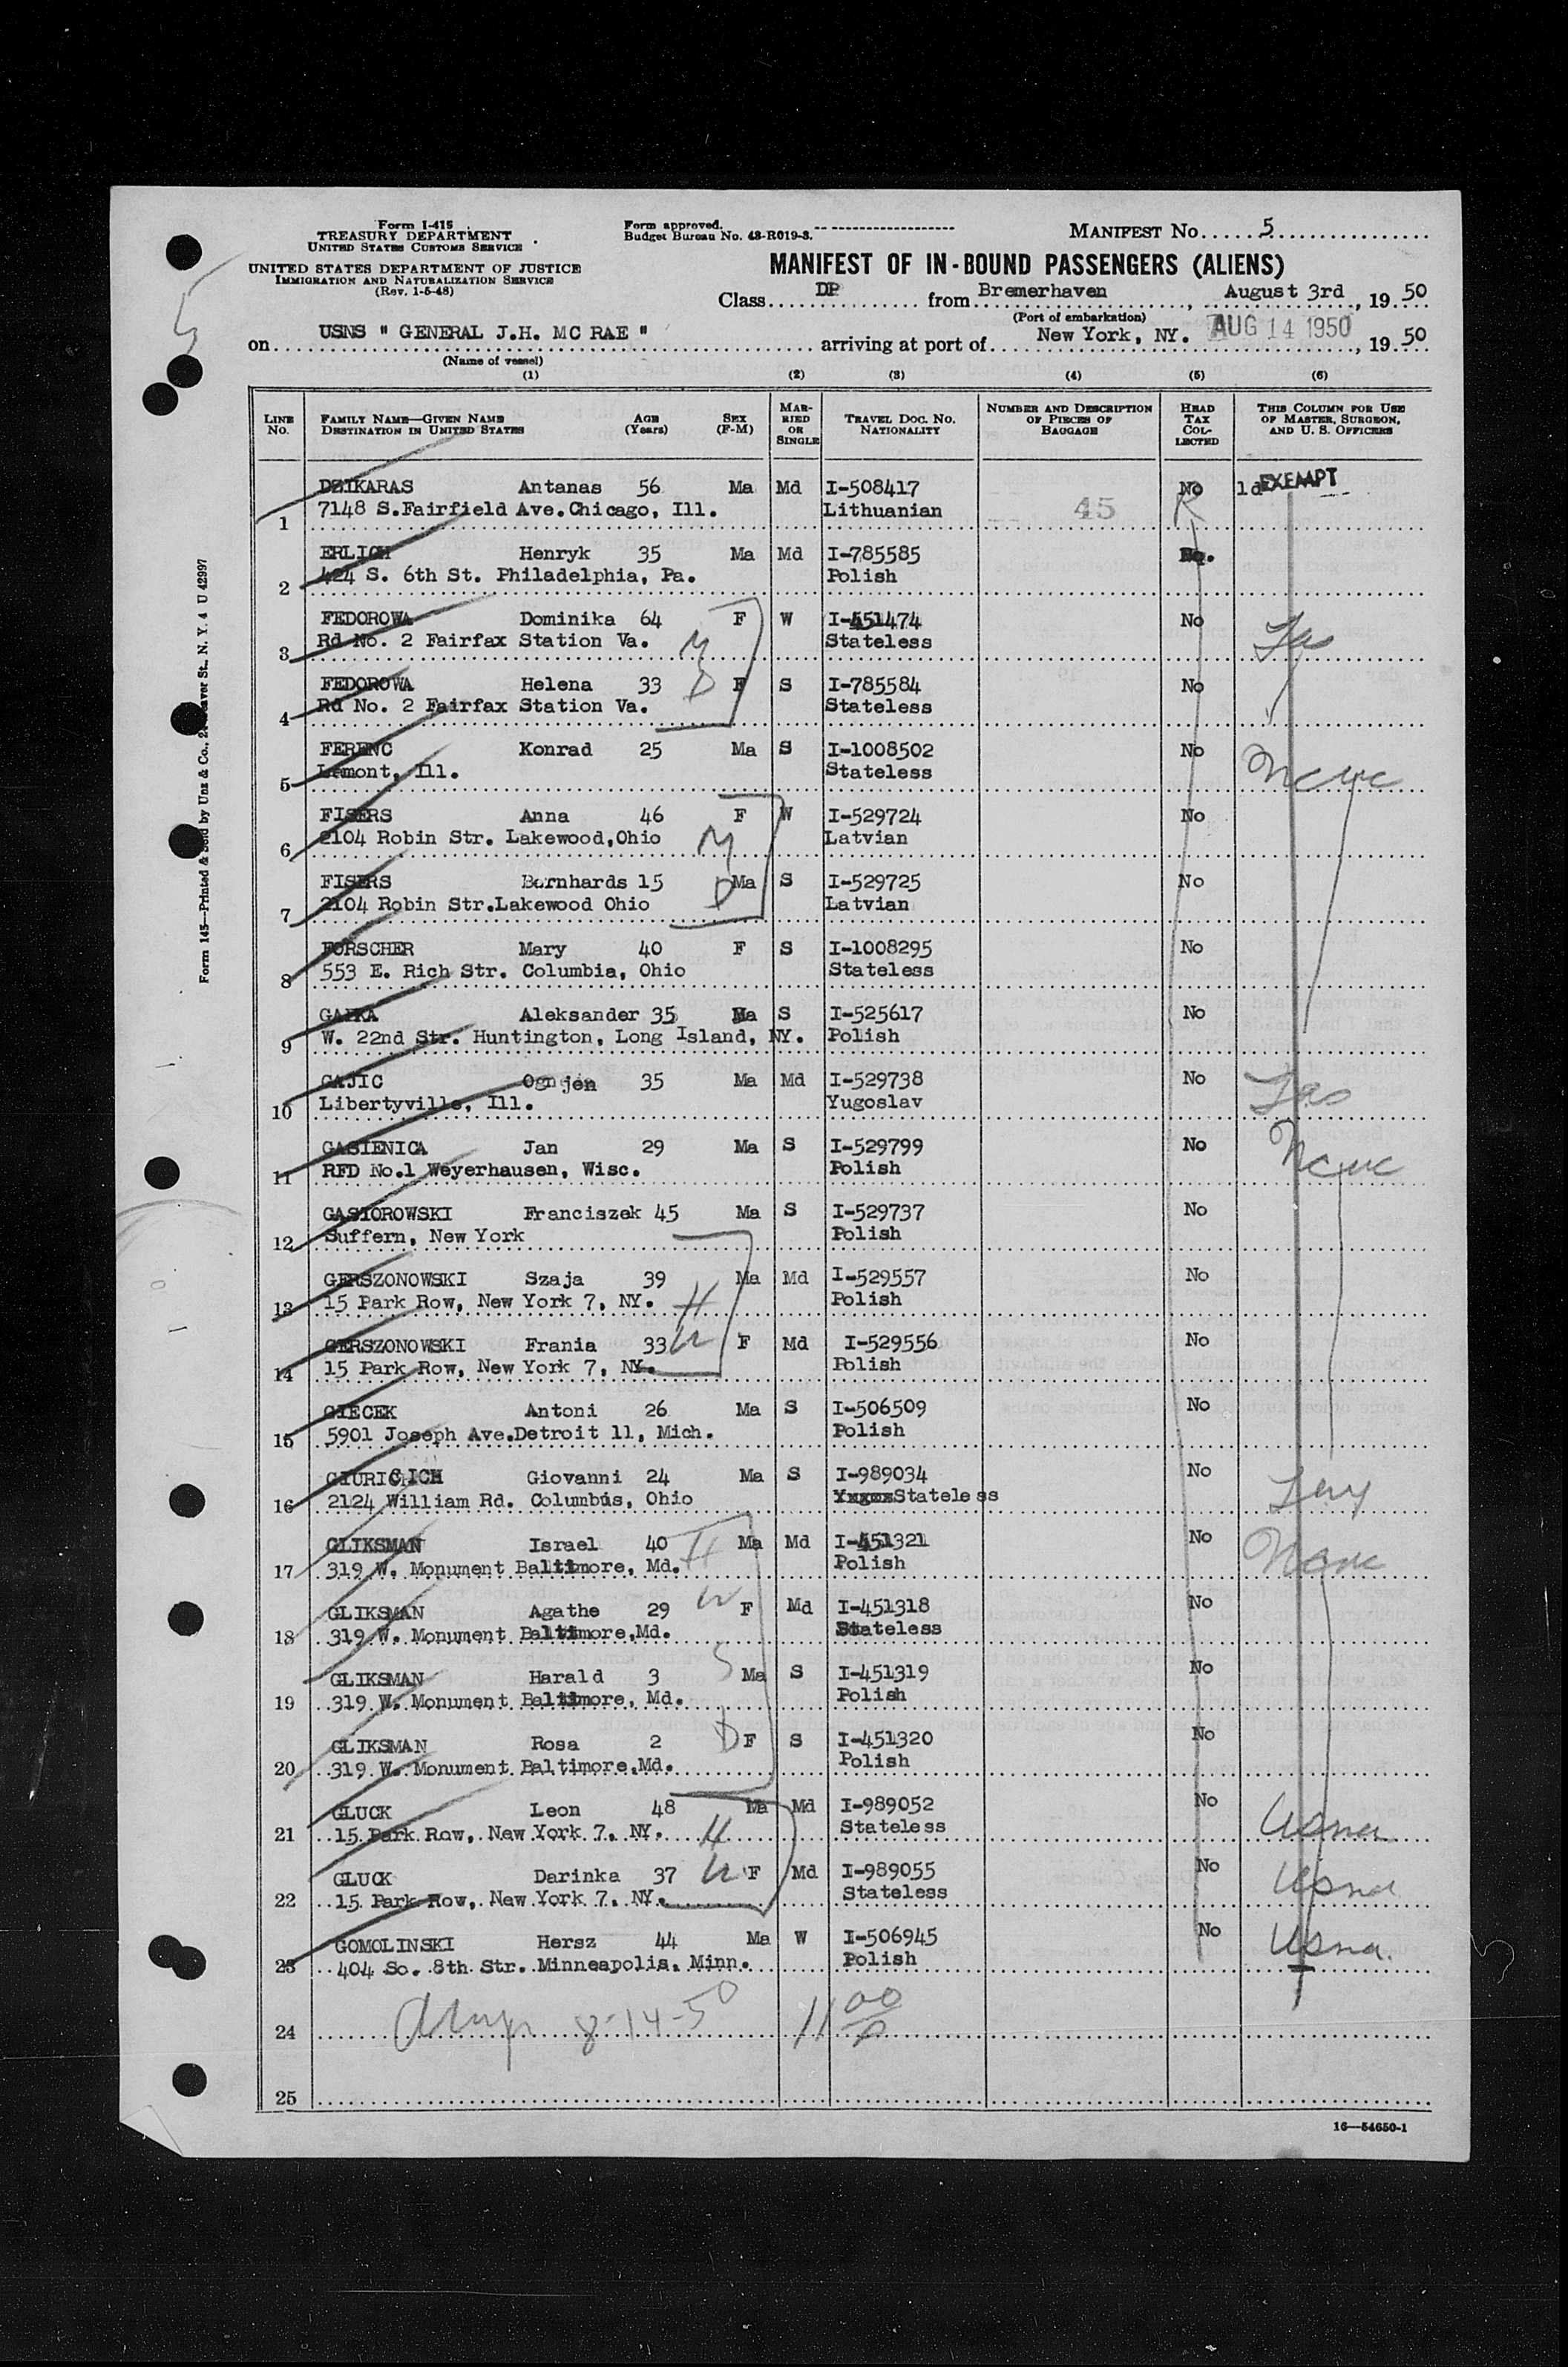 Form I-415
TREASURY DEPARTMENT
UNITED STATES CUSTOMS SERVICE
UNITED STATES DEPARTMENT OF JUSTICE
IMMIGRATION AND NATURALIZATION SERVICE
(Rev. 1-5-48)
Form approved.
Budget Bureau No. 43-R019-3.
MANIFEST No. 5
MANIFEST OF IN-BOUND PASSENGERS (ALIENS)
Class DP from Bremerhaven, August 3rd, 19 50
(Port of embarkation)
on USNS " GENERAL J.H. MC RAE " arriving at port of New York, NY. AUG 14 1950, 19 50
(Name of vessel)
(1) (2) (3) (4) (5) (6)
LINE NO. FAMILY NAME—GIVEN NAME DESTINATION IN UNITED STATES AGE (Years) SEX (F-M) MARRIED OR SINGLE TRAVEL DOC. NO. NATIONALITY NUMBER AND DESCRIPTION OF PIECES OF BAGGAGE HEAD TAX COLLECTED THIS COLUMN FOR USE OF MASTER, SURGEON, AND U. S. OFFICERS
DZIKARAS Antanas 56 Ma Md I-508417 No ld EXEMPT
1 7148 S.Fairfield Ave.Chicago, Ill. Lithuanian 45
ERLICH Henryk 35 Ma Md I-785585 No.
2 424 S. 6th St. Philadelphia, Pa. Polish
FEDOROWA Dominika 64 F W I-451474 No
3 Rd No. 2 Fairfax Station Va. M Stateless
FEDOROWA Helena 33 D F S I-785584 No
4 Rd No. 2 Fairfax Station Va. Stateless
FERENC Konrad 25 Ma S I-1008502 No
5 Lemont, Ill. Stateless Ncwc
FISERS Anna 46 F W I-529724 No
6 2104 Robin Str. Lakewood,Ohio M Latvian
FISERS Bernhards 15 Ma S I-529725 No
7 2104 Robin Str.Lakewood Ohio D Latvian
FORSCHER Mary 40 F S I-1008295 No
8 553 E. Rich Str. Columbia, Ohio Stateless
GAJKA Aleksander 35 Ma S I-525617 No
9 W. 22nd Str. Huntington, Long Island, NY. Polish
GAJIC Ognjen 35 Ma Md I-529738 No
10 Libertyville, Ill. Yugoslav
GASIENICA Jan 29 Ma S I-529799 No
11 RFD No.1 Weyerhausen, Wisc. Polish Ncwc
GASIOROWSKI Franciszek 45 Ma S I-529737 No
12 Suffern, New York Polish
GERSZONOWSKI Szaja 39 Ma Md I-529557 No
13 15 Park Row, New York 7, NY. H Polish
GERSZONOWSKI Frania 33 W F Md I-529556 No
14 15 Park Row, New York 7, NY. Polish
GIECEK Antoni 26 Ma S I-506509 No
15 5901 Joseph Ave.Detroit 11, Mich. Polish
GIURICICH Giovanni 24 Ma S I-989034 No
16 2124 William Rd. Columbus, Ohio Stateless
GLIKSMAN Israel 40 Ma Md I-451321 No
17 319 W. Monument Baltimore, Md. H Polish Ncwc
GLIKSMAN Agathe 29 W F Md I-451318 No
18 319 W. Monument Baltimore,Md. Stateless
GLIKSMAN Harald 3 S Ma S I-451319 No
19 319 W. Monument Baltimore, Md. Polish
GLIKSMAN Rosa 2 D F S I-451320 No
20 319 W. Monument Baltimore,Md. Polish
GLUCK Leon 48 Ma Md I-989052 No
21 15 Park Row, New York 7, NY. H Stateless Usna
GLUCK Darinka 37 W F Md I-989055 No
22 15 Park Row, New York 7, NY. Stateless Usna
GOMOLINSKI Hersz 44 Ma W I-506945 No
23 404 So. 8th Str. Minneapolis, Minn. Polish Usna.
24 8-14-50 11 00 P
25
16—54650-1
Form 145—Printed & Sold by Unz & Co., 24 Beaver St., N. Y. 4 U 42997